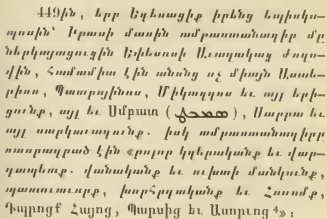 449ին, երբ Եդեսացիք իրենց եպիսկո-
պոսին՝ Իբասի մասին ամբաստանագիր մը
ներկայացուցին Եփեսոսի Աւազակաց ժողո-
վին, համամիտ էին անոնց ոչ միայն Աստե-
րիոս, Պատրոփինոս, Միկալլոս եւ այլ երի-
ցունք, այլ եւ Սմբատ (ܣܡܒܛ), Սաբբա եւ
այլ սարկաւագունք. իսկ ամբաստանագիրը
ստորագրած էին «բոլոր կղերականք եւ վար-
դապետք. վանականք եւ ուխտի մանկունք,
պատուաւորք, խորհրդականք եւ Հռոոմք,
Դպրոցք Հայոց, Պարսից եւ Ասորւոց⁴»։